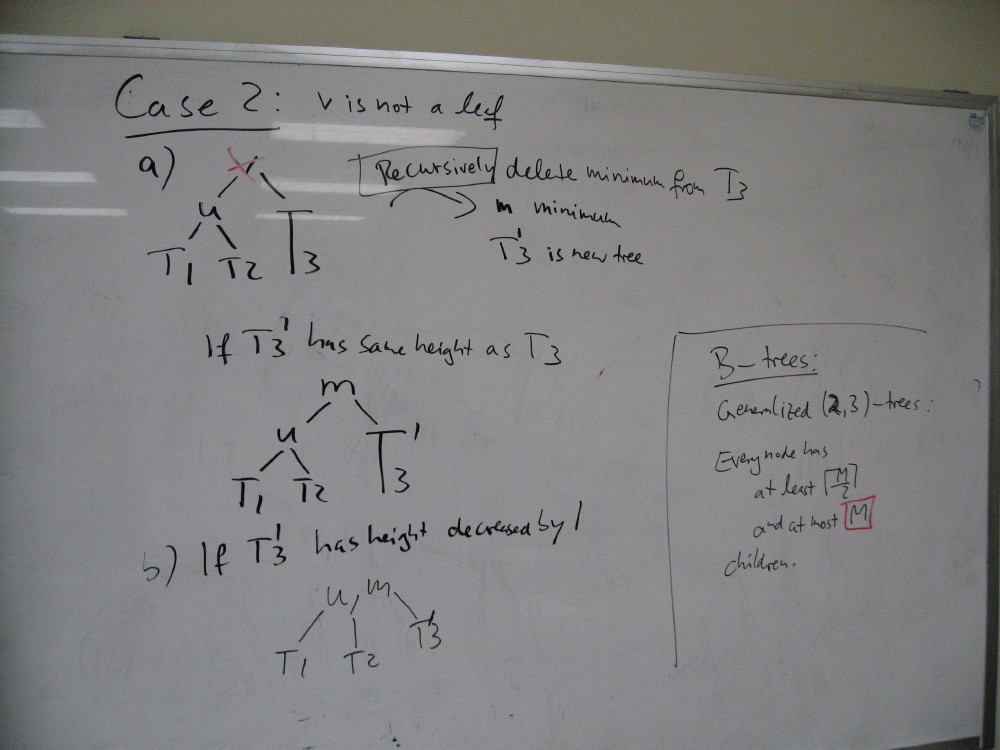 Case 2: v is not a leaf
a) v Recursively delete minimum from T3
u m minimum
T1 T2 T3 T3' is new tree
If T3' has same height as T3
m
u T3'
T1 T2
b) If T3' has height decreased by 1
u, m
T1 T2 T3'
B-trees:
Generalized (2,3)-trees:
Every node has
at least ⌈M/2⌉
and at most M
children.